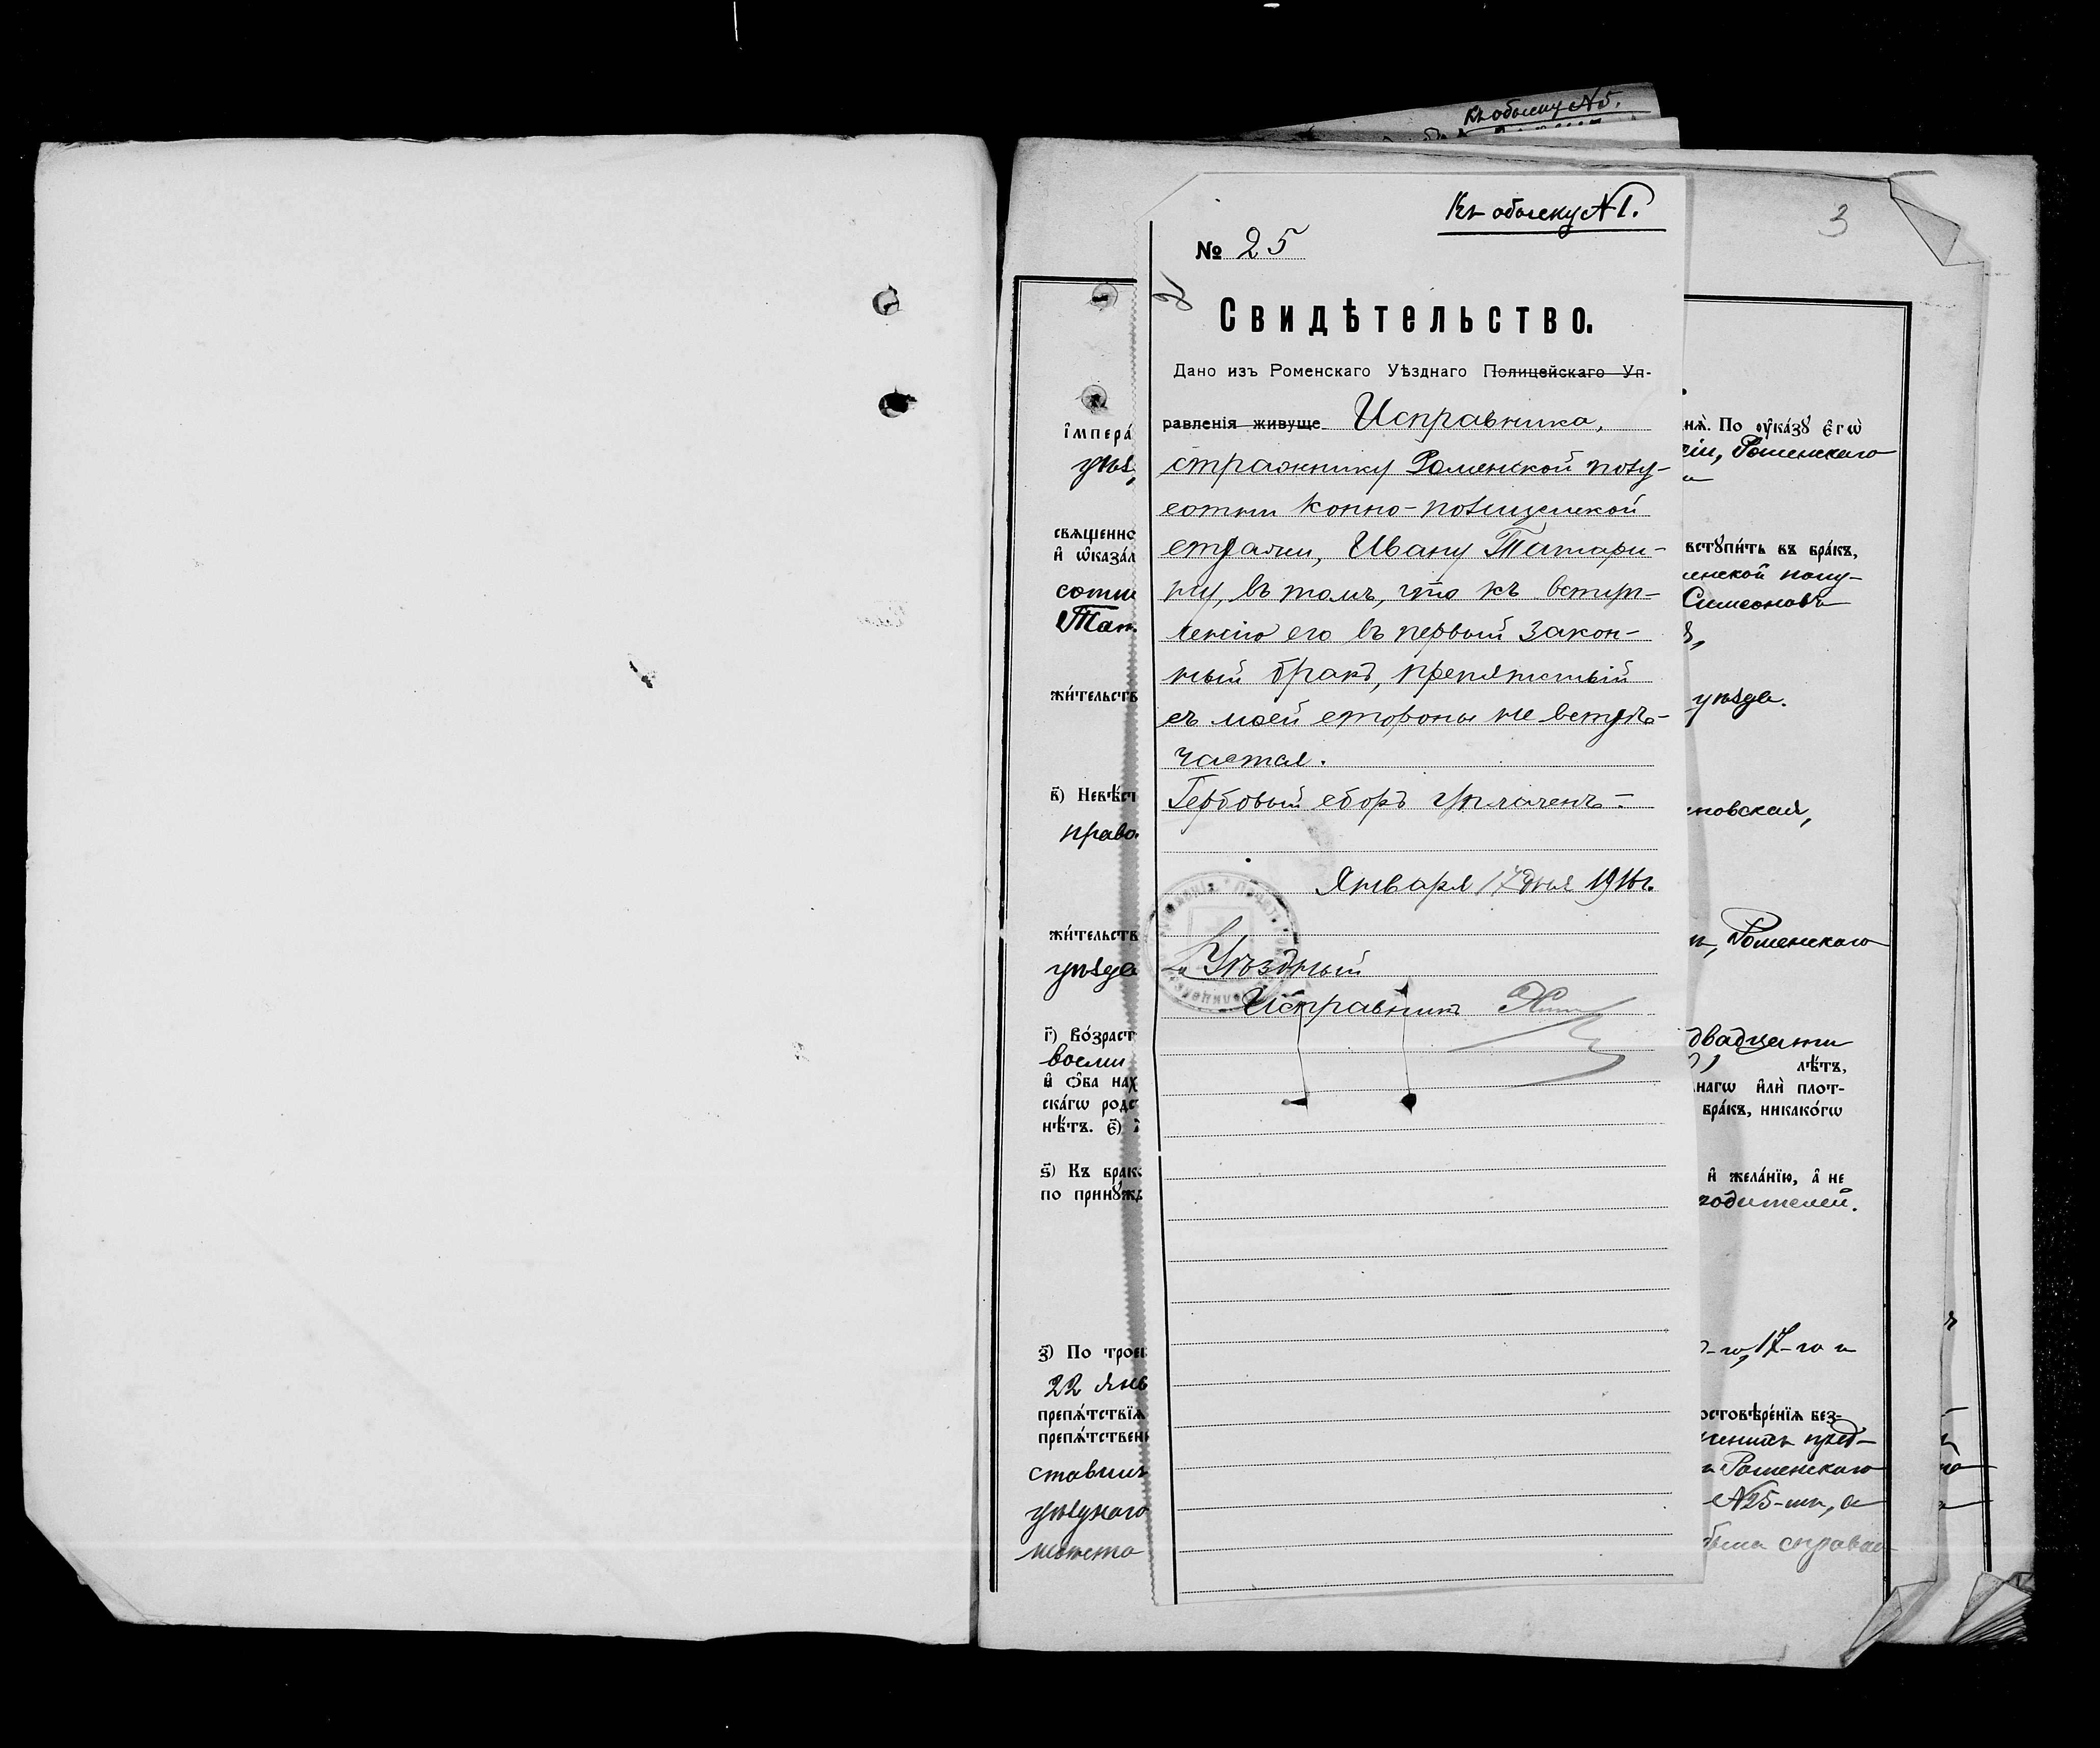 Къ обыску №5.
Къ обыску №1.
3
№ 25
Свидѣтельство.
Дано изъ Роменскаго Уѣзднаго Полицейскаго Уп-
равленія живуще Исправника,
стражнику Роменской полу-
сотни конно-полицейской
стражи, Ивану Татари-
ну, въ томъ, что къ вступ-
ленію его въ первый закон-
ный бракъ, препятствій
съ моей стороны не встрѣ-
чается.
Гербовый сборъ уплаченъ.
Января 17 дня 1916 г.
Уѣздный
Исправникъ
і҆мпера́
уѣз
свѧщенно
и҆ ѡ҆каза́л
сотни
Тат
жи́тельств
в҃) Невѣ́ст
право
жи́тельств
уѣзда
г҃) Во́зраст
восьми
и҆ о҆́ба нах
ска́гѡ родс
нѣ́тъ. є҃)
ѕ҃) Къ брак
по принꙋжд
з҃) По троек
22 янв
препѧ́тствїѧ
препѧ́тствен
ставил
уѣзднаго
нїѧ̀. По ᲂу҆ка́зꙋ є҆гѡ̀
сіи, Роменскаго
встꙋпи́ть въ бра́къ,
менской полу-
Симеоновъ
уѣзда.
новская,
и, Роменскаго
двадцати
лѣ́тъ,
нагѡ и҆лѝ плот-
бра́къ, никако́гѡ
и҆ жела́нїю, а҆ не
родителей.
-го, 17-го и
остовѣре́нїѧ без-
женихъ пред-
Роменскаго
№25-мъ, а